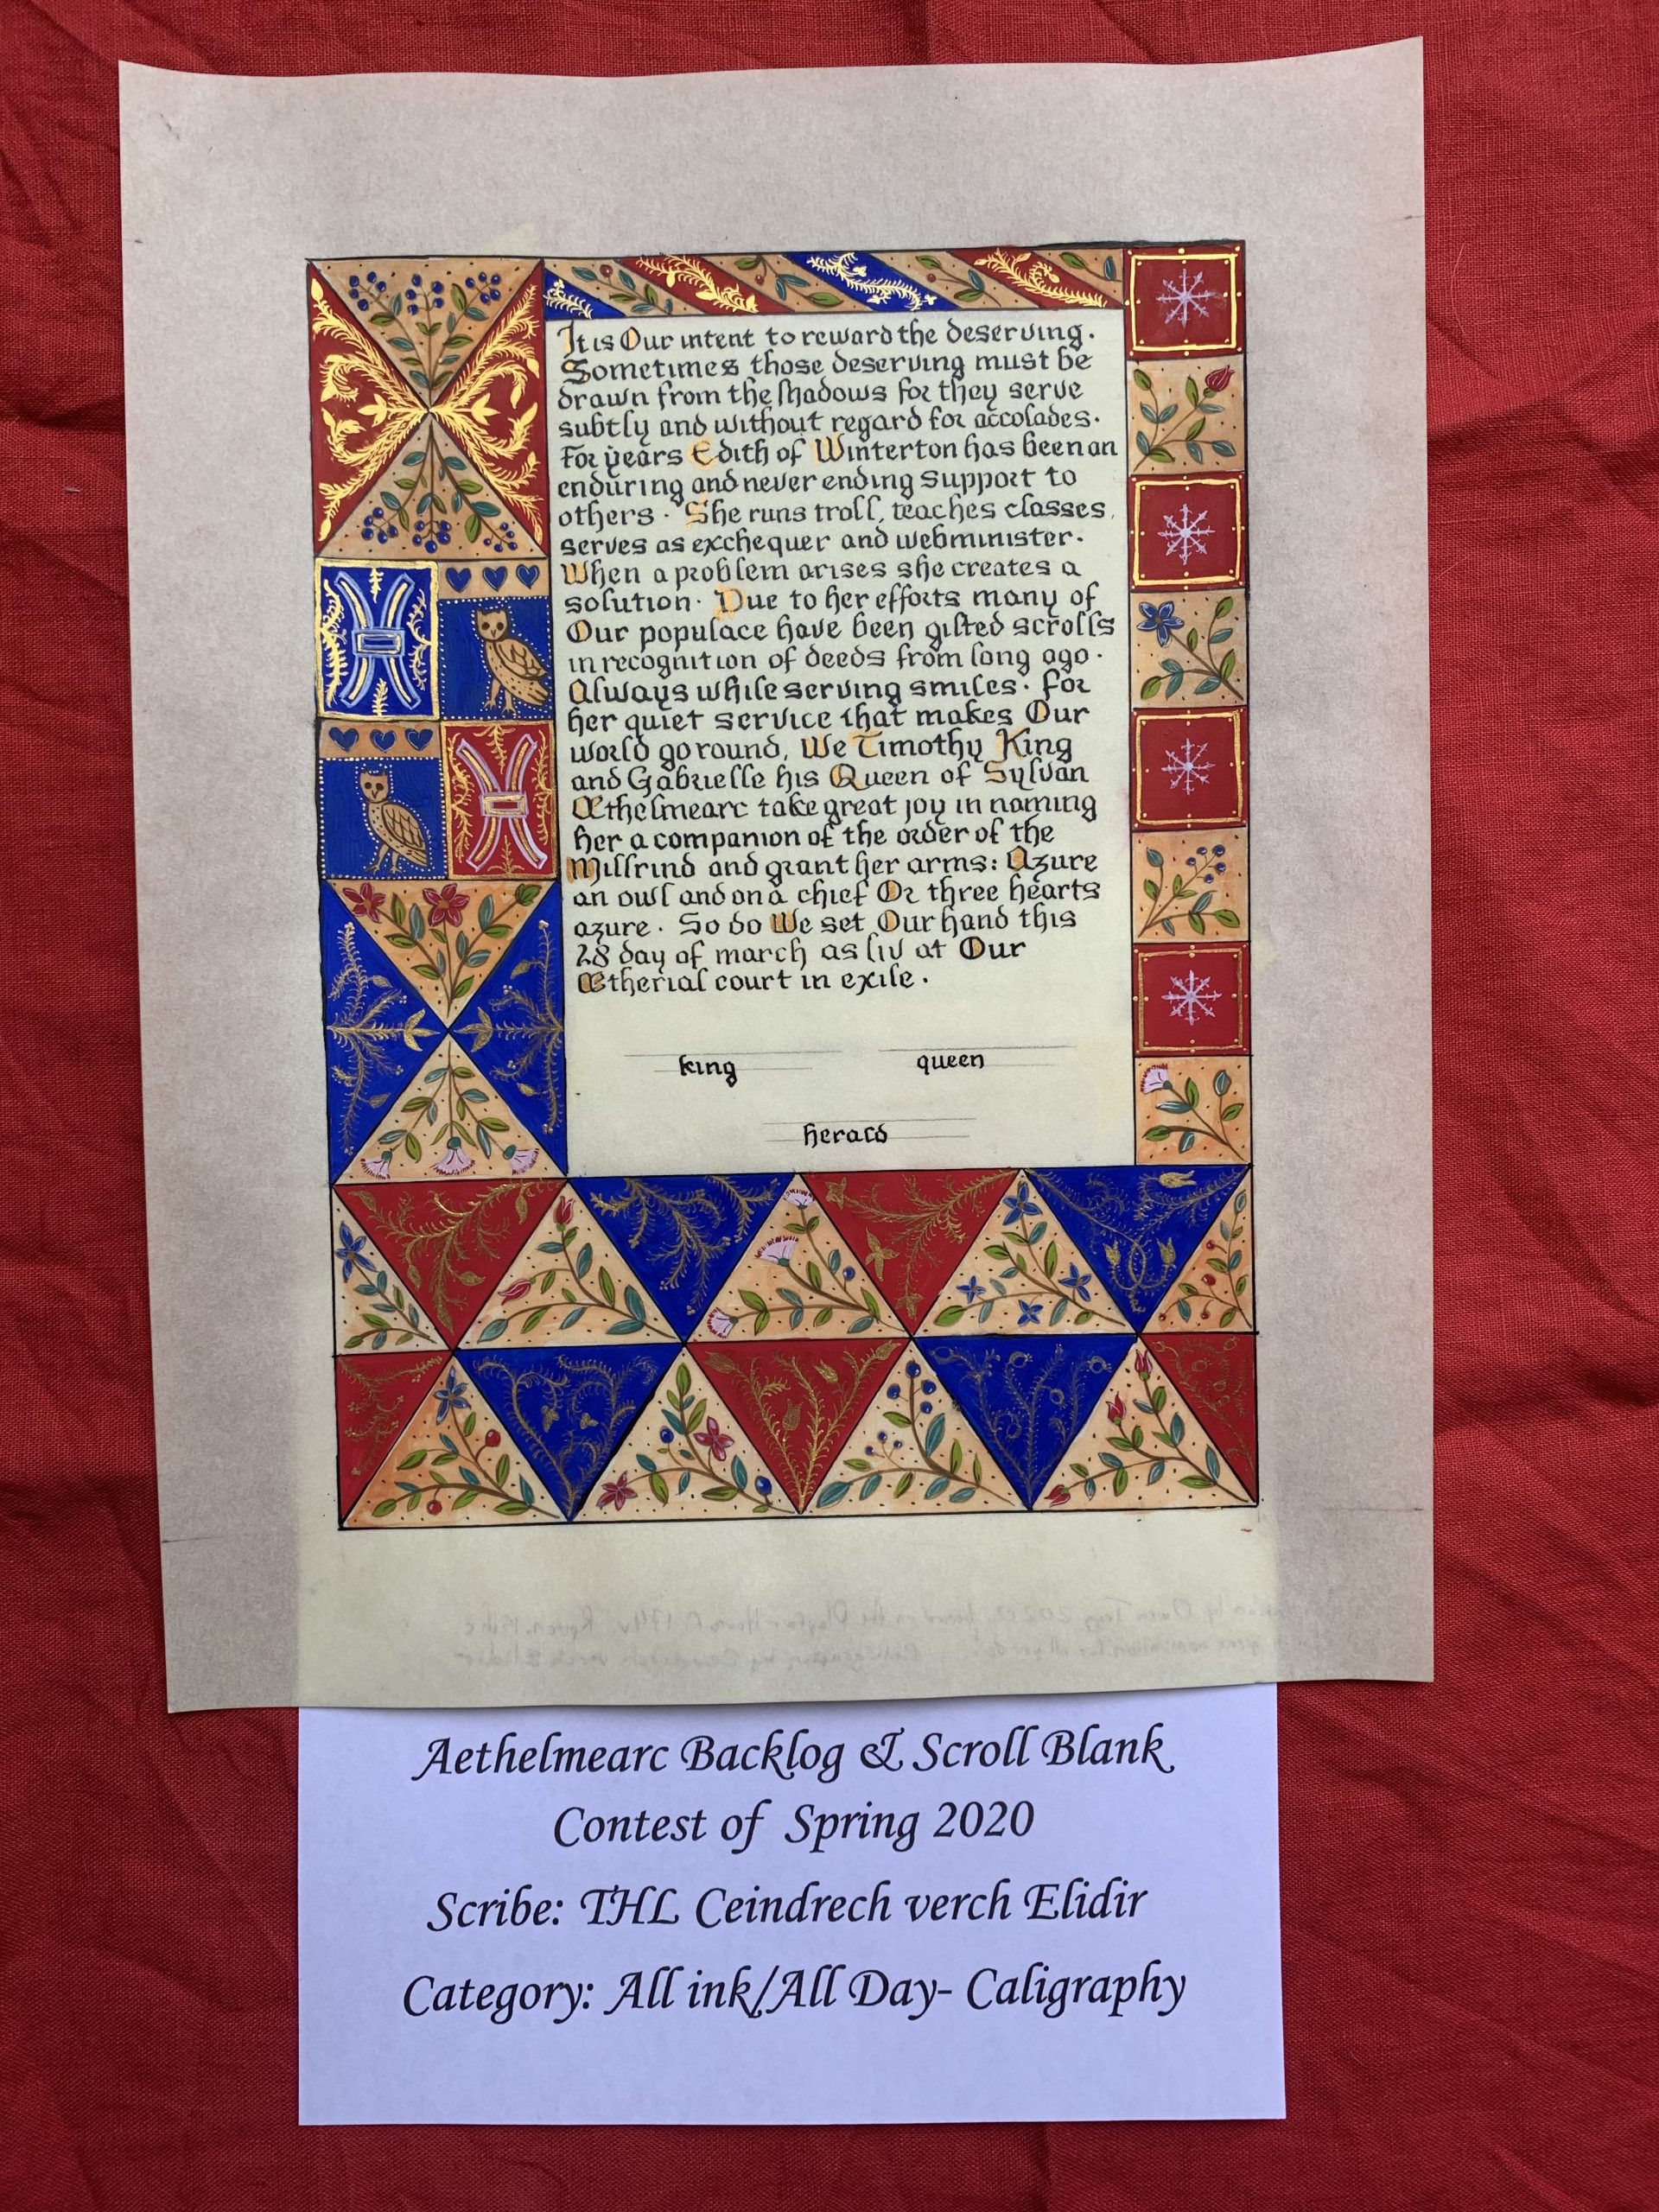 It is Our intent to reward the deserving.
Sometimes those deserving must be
drawn from the shadows for they serve
subtly and without regard for accolades.
For years Edith of Winterton has been an
enduring and never ending support to
others. She runs troll, teaches classes,
serves as exchequer and webminister.
When a problem arises she creates a
solution. Due to her efforts many of
Our populace have been gifted scrolls
in recognition of deeds from long ago.
Always while serving smiles. For
her quiet service that makes Our
world go round, We Timothy King
and Gabrielle his Queen of Sylvan
Æthelmearc take great joy in naming
her a companion of the order of the
Millrind and grant her arms: Azure
an owl and on a chief Or three hearts
azure. So do We set Our hand this
28 day of march as liv at Our
Ætherial court in exile.
king queen
herald
Aethelmearc Backlog & Scroll Blank
Contest of Spring 2020
Scribe: THL Ceindrech verch Elidir
Category: All ink/All Day- Caligraphy